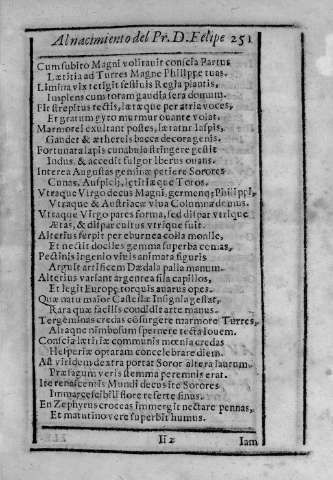 Al nacimiento del Pr. D. Felipe 251
Cum subito Magni volitauit conscia Partus
Lætitia ad Turres Magne Philippe tuas.
Limina vix tetigit festiuis Regia plantis,
Implens cum toram gaudia sera domum.
Fit strepitus tectis, lætæque per atria voces,
Et gratum gyro murmur ouante volat.
Marmorei exultant postes, lætatur Iaspis,
Gaudet & æthereis bacca decora genis.
Fortunata lapis cunabula stringere gestit
Indus, & accedit fulgor liberus ouans.
Interea Augustas geminæ petiere Sorores
Cunas, Auspicij, lętitięque Toros.
Vtraque Virgo decus Magni, germenq; Philippi,
Vtraque & Austriacæ viua Columna domus.
Vtraque Virgo pares forma, sed dispar vtrique
Ætas, & dispar cultus vtrique fuit.
Alterius serpit per eburnea colla monile,
Et nectit dociles gemma superba comas,
Pectinis ingenio viuis animata figuris
Arguit artificem Dædala palla manum.
Alterius variant argentea fila capillos,
Et legit Europę torquis auarus opes.
Quæ natu maior Castellæ Insignia gestat,
Rara quæ facilis condidit arte manus.
Tergeminas credas cōsurgere marmore Turres,
Atraque nimbosum spernere tecta Iouem.
Conscia lætitiæ communis mœnia credas
Hesperiæ optatam concelebrare diem.
Ast viridem dextra portat Soror altera laurum
Præsagum veris stemma peremnis erat.
Ite renascentis Mundi decus ite Sorores
Immarcesibili flore referte sinus.
En Zephyrus croceas immergit nectare pennas,
Et matutino vere superbit humus.
Ii 2 Iam